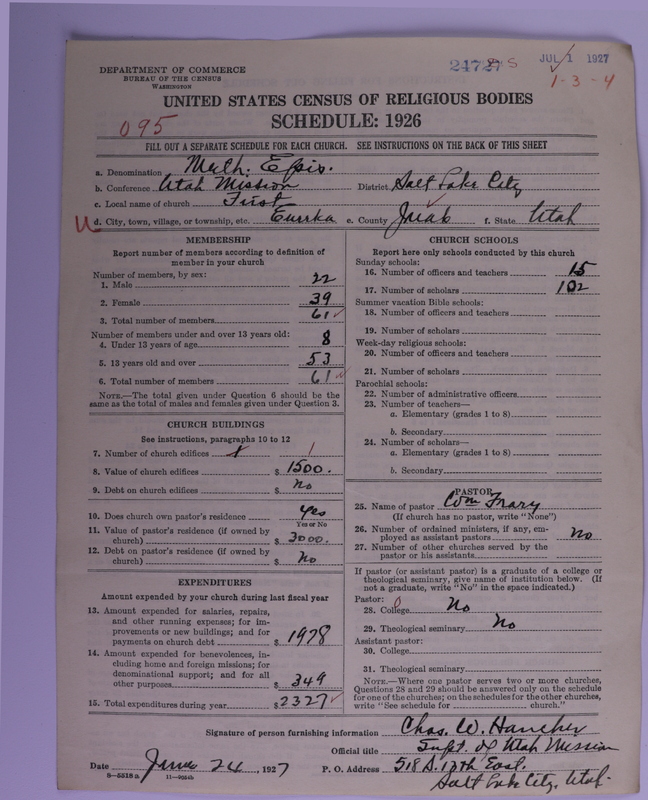 24727 S JUL 1 1927
1-3-4
DEPARTMENT OF COMMERCE
BUREAU OF THE CENSUS
WASHINGTON
UNITED STATES CENSUS OF RELIGIOUS BODIES
SCHEDULE: 1926
095
FILL OUT A SEPARATE SCHEDULE FOR EACH CHURCH. SEE INSTRUCTIONS ON THE BACK OF THIS SHEET
a. Denomination Meth. Epis.
b. Conference Utah Mission District Salt Lake City
c. Local name of church First
d. City, town, village, or township, etc. Eureka e. County Juab f. State Utah
MEMBERSHIP
Report number of members according to definition of
member in your church
Number of members, by sex:
1. Male 22
2. Female 39
3. Total number of members 61
Number of members under and over 13 years old:
4. Under 13 years of age 8
5. 13 years old and over 53
6. Total number of members 61
NOTE.—The total given under Question 6 should be the
same as the total of males and females given under Question 3.
CHURCH BUILDINGS
See instructions, paragraphs 10 to 12
7. Number of church edifices 1
8. Value of church edifices $ 1500.
9. Debt on church edifices $ No
10. Does church own pastor's residence Yes
Yes or No
11. Value of pastor's residence (if owned by
church) $ 3000.
12. Debt on pastor's residence (if owned by
church) $ No
EXPENDITURES
Amount expended by your church during last fiscal year
13. Amount expended for salaries, repairs,
and other running expenses; for im-
provements or new buildings; and for
payments on church debt $ 1978
14. Amount expended for benevolences, in-
cluding home and foreign missions; for
denominational support; and for all
other purposes $ 349
15. Total expenditures during year $ 2327
CHURCH SCHOOLS
Report here only schools conducted by this church
Sunday schools:
16. Number of officers and teachers 15
17. Number of scholars 102
Summer vacation Bible schools:
18. Number of officers and teachers
19. Number of scholars
Week-day religious schools:
20. Number of officers and teachers
21. Number of scholars
Parochial schools:
22. Number of administrative officers
23. Number of teachers—
a. Elementary (grades 1 to 8)
b. Secondary
24. Number of scholars—
a. Elementary (grades 1 to 8)
b. Secondary
PASTOR
25. Name of pastor Wm Frary
(If church has no pastor, write "None")
26. Number of ordained ministers, if any, em-
ployed as assistant pastors No
27. Number of other churches served by the
pastor or his assistants
If pastor (or assistant pastor) is a graduate of a college or
theological seminary, give name of institution below. (If
not a graduate, write "No" in the space indicated.)
Pastor: 0
28. College No
29. Theological seminary No
Assistant pastor:
30. College
31. Theological seminary
NOTE.—Where one pastor serves two or more churches,
Questions 28 and 29 should be answered only on the schedule
for one of the churches; on the schedules for the other churches,
write "See schedule for church."
Signature of person furnishing information Chas. W. Hancher
Official title Supt. of Utah Mission
Date June 24, 1927 P. O. Address 518 S. 13th East.
8-5518 a 11-9204b Salt Lake City, Utah.